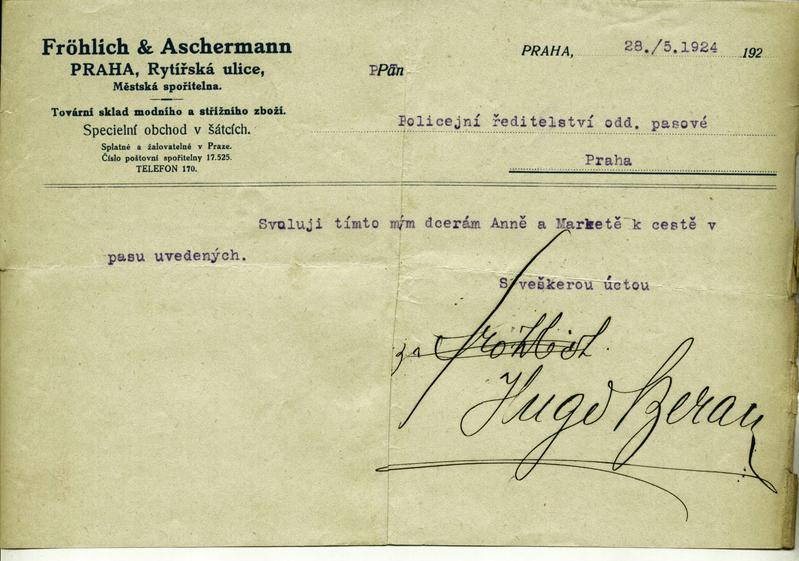 Fröhlich & Aschermann
PRAHA, Rytířská ulice,
Městská spořitelna.
Tovární sklad modního a střižního zboží.
Specielní obchod v šátcích.
Splatné a žalovatelné v Praze.
Číslo poštovní spořitelny 17.525.
TELEFON 170.
PRAHA, 28./5.1924 192
PPán
Policejní ředitelství odd. pasové
Praha
Svoluji tímto mým dcerám Anně a Marketě k cestě v
pasu uvedených.
S veškerou úctou
za Fröhlich
Hugo Beran